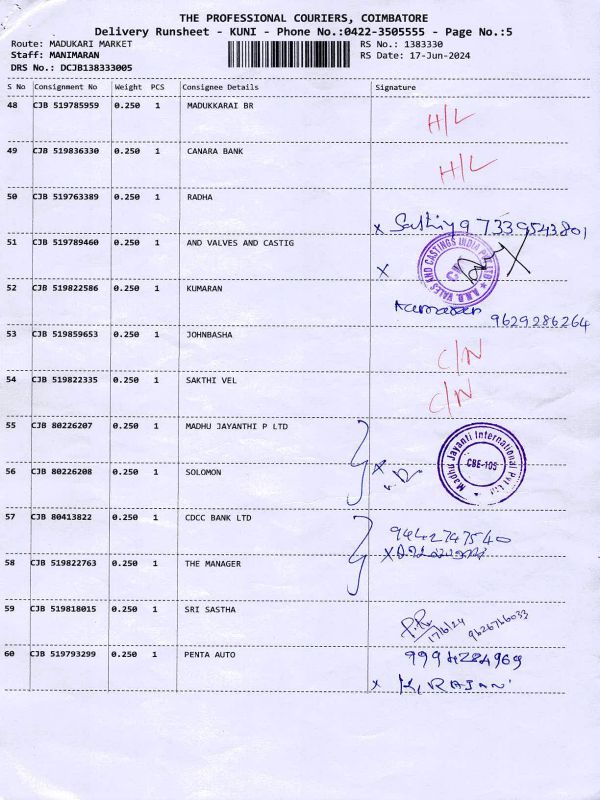 THE PROFESSIONAL COURIERS, COIMBATORE
Delivery Runsheet - KUNI - Phone No.:0422-3505555 - Page No.:5
Route: MADUKARI MARKET RS No.: 1383330
Staff: MANIMARAN RS Date: 17-Jun-2024
DRS No.: DCJB138333005
S No Consignment No Weight PCS Consignee Details Signature
48 CJB 519785959 0.250 1 MADUKKARAI BR H/L
49 CJB 519836330 0.250 1 CANARA BANK H/L
50 CJB 519763389 0.250 1 RADHA
x Sathiya 97339543801
51 CJB 519789460 0.250 1 AND VALVES AND CASTIG
x
52 CJB 519822586 0.250 1 KUMARAN Kumaran
9629286264
53 CJB 519859653 0.250 1 JOHNBASHA C/N
54 CJB 519822335 0.250 1 SAKTHI VEL C/N
55 CJB 80226207 0.250 1 MADHU JAYANTHI P LTD
Madhu Jayanti International Pvt Ltd
CBE-105
56 CJB 80226208 0.250 1 SOLOMON x
57 CJB 80413822 0.250 1 CDCC BANK LTD
9442747540
x
58 CJB 519822763 0.250 1 THE MANAGER
59 CJB 519818015 0.250 1 SRI SASTHA
17/6/24 9626766033
60 CJB 519793299 0.250 1 PENTA AUTO 9994284969
x K, RAJAN